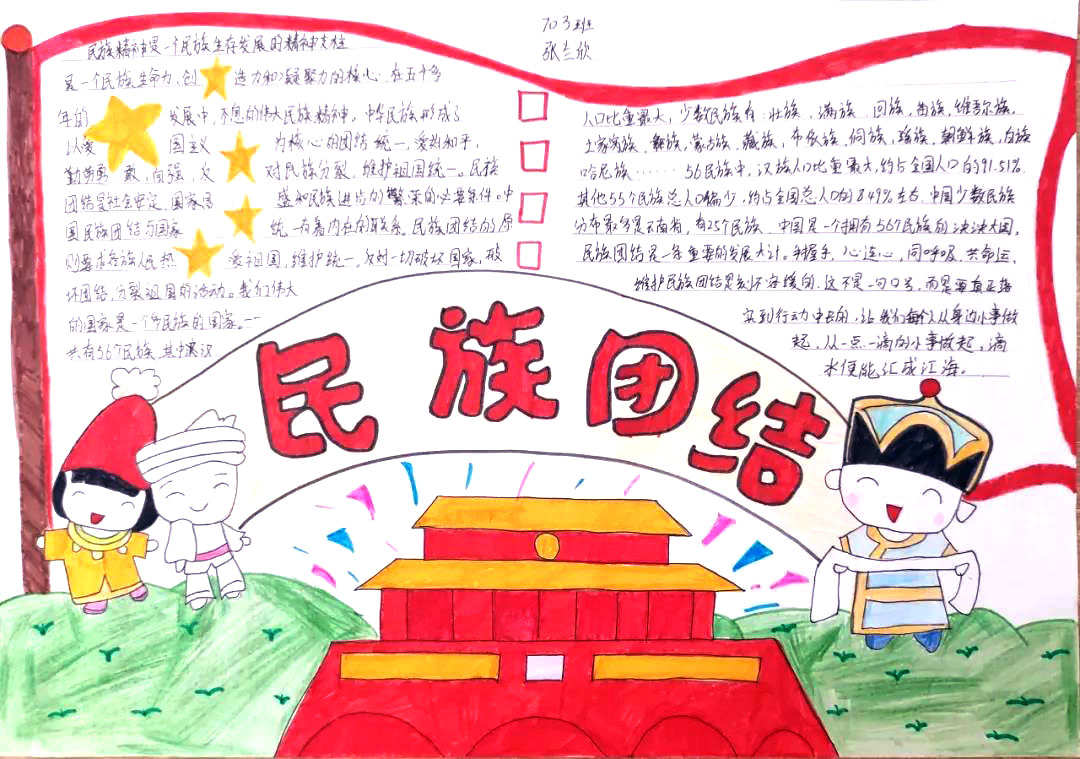 703班
张兰欣
民族精神是一个民族生存发展的精神支柱
是一个民族生命力、创造力和凝聚力的核心。在五千多
年的发展中,不息的伟大民族精神。中华民族形成了
以爱国主义为核心的团结统一,爱好和平,
勤劳勇敢,自强,反对民族分裂,维护祖国统一。民族
团结是社会安定、国家昌盛和民族进步的繁荣的必要条件。中
国民族团结与国家统一有着内在的联系,民族团结的原
则要求各族人民热爱祖国,维护统一,反对一切破坏国家、破
坏团结,分裂祖国的活动。我们伟大
的国家是一个多民族的国家。一
共有56个民族,其中汉
人口比重最大,少数民族有:壮族、满族、回族、苗族、维吾尔族、
土家族、彝族、蒙古族、藏族、布依族、侗族、瑶族、朝鲜族、白族
哈尼族……56民族中,汉族人口比重最大,约占全国人口的91.51%.
其他55个民族总人口偏少,约占全国总人口的8.49%左右.中国少数民族
分布最多是云南省,有25个民族、中国是一个拥有56个民族的泱泱大国,
民族团结是一年重要的发展大计。手握手,心连心,同呼吸、共命运,
维护民族团结是刻不容缓的,这不是一句口号,而是要真正落
实到行动中去的,让我们每个人从身边小事做
起,从一点一滴的小事做起,滴
水便能汇成江海。
民族团结